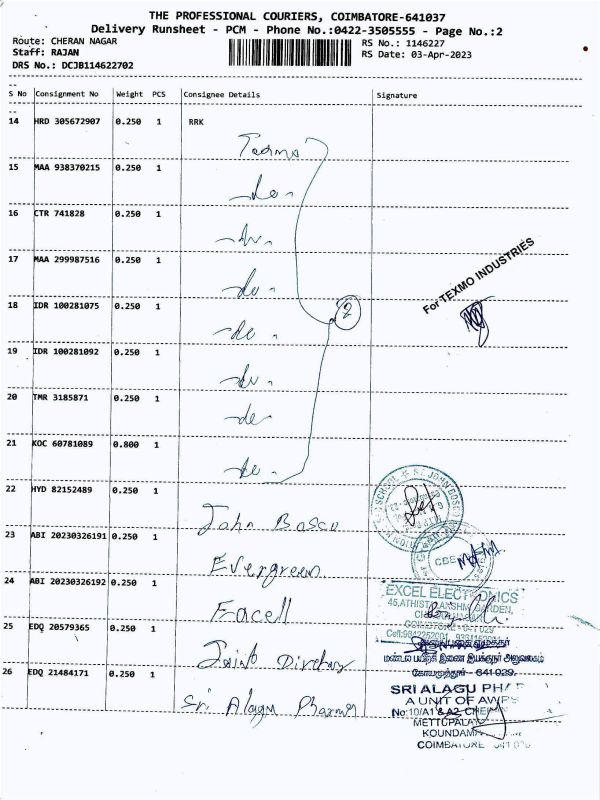 THE PROFESSIONAL COURIERS, COIMBATORE-641037
Delivery Runsheet - PCM - Phone No.:0422-3505555 - Page No.:2
Route: CHERAN NAGAR
Staff: RAJAN
DRS No.: DCJB114622702
RS No.: 1146227
RS Date: 03-Apr-2023
S No Consignment No Weight PCS Consignee Details Signature
14 HRD 305672907 0.250 1 RRK
15 MAA 938370215 0.250 1
do
16 CTR 741828 0.250 1
do
17 MAA 299987516 0.250 1
do
18 IDR 100281075 0.250 1
do
19 IDR 100281092 0.250 1
do
20 TMR 3185871 0.250 1
do
21 KOC 60781089 0.800 1
do
For TEXMO INDUSTRIES
22 HYD 82152489 0.250 1
John Bosco
23 ABI 20230326191 0.250 1
Evergreen
24 ABI 20230326192 0.250 1
Facell
EXCEL ELECTRONICS
25 EDQ 20579365 0.250 1
Joint Director
மண்டல பயிற்சி இணை இயக்குநர் அலுவலகம்
கோயமுத்தூர் - 641 029.
26 EDQ 21484171 0.250 1
Sri Alagu Pharma
SRI ALAGU PHAR
A UNIT OF AWPS
No:10/A1 & A2, CHERAN
METTUPALAY
KOUNDAM
COIMBATORE